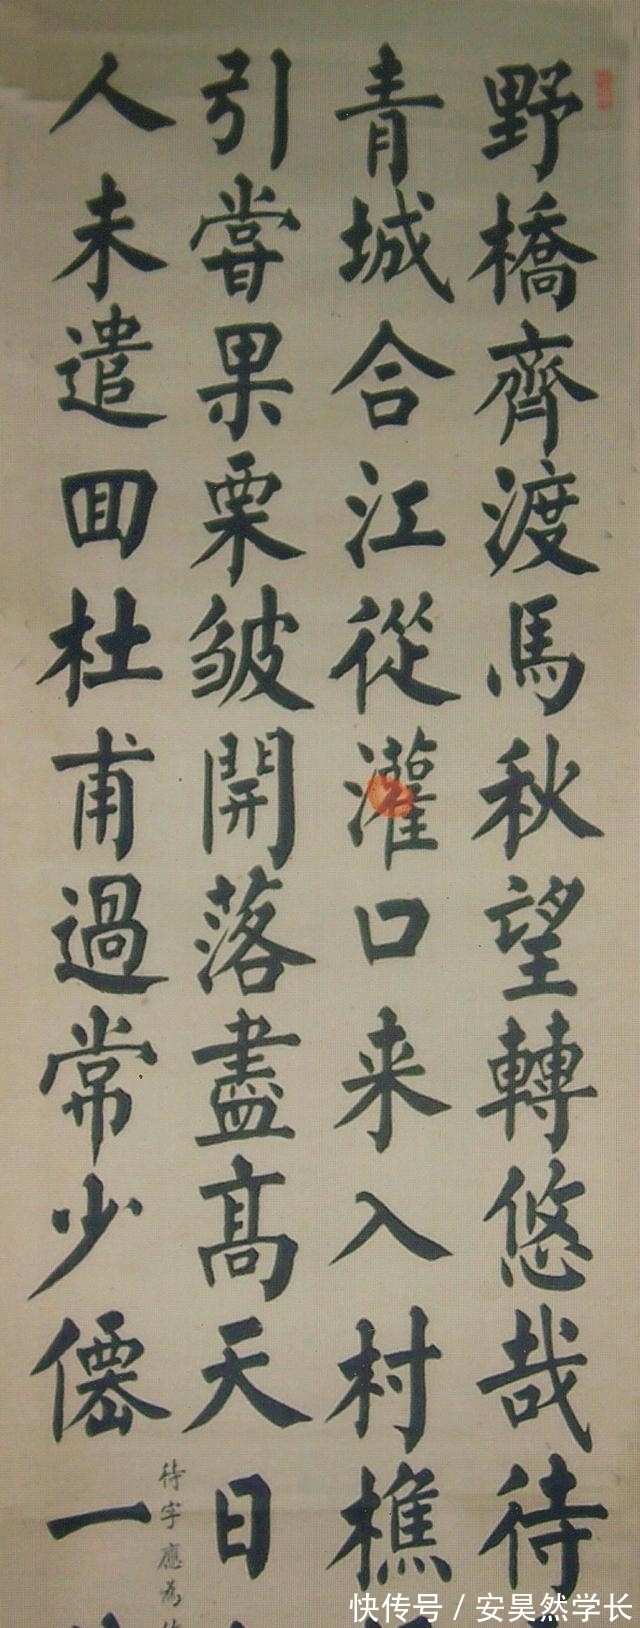 野橋齊渡馬秋望轉悠哉待
青城合江從灌口来入村樵
引嘗果栗皱開落盡高天日
人未遣回杜甫過常少僊一
待字應為
快传号 / 安昊然学长